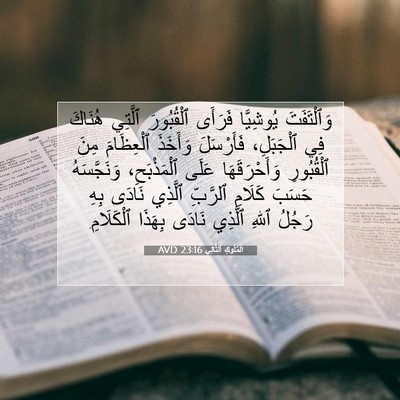 وَٱلْتَفَتَ يُوشِيَّا فَرَأَى ٱلْقُبُورَ ٱلَّتِي هُنَاكَ
فِي ٱلْجَبَلِ، فَأَرْسَلَ وَأَخَذَ ٱلْعِظَامَ مِنَ
ٱلْقُبُورِ وَأَحْرَقَهَا عَلَى ٱلْمَذْبَحِ، وَنَجَّسَهُ
حَسَبَ كَلَامِ ٱلرَّبِّ ٱلَّذِي نَادَى بِهِ
رَجُلُ ٱللهِ ٱلَّذِي نَادَى بِهَذَا ٱلْكَلَامِ.
اَلْمُلُوكِ ٱلثَّانِي 23:16 AVD